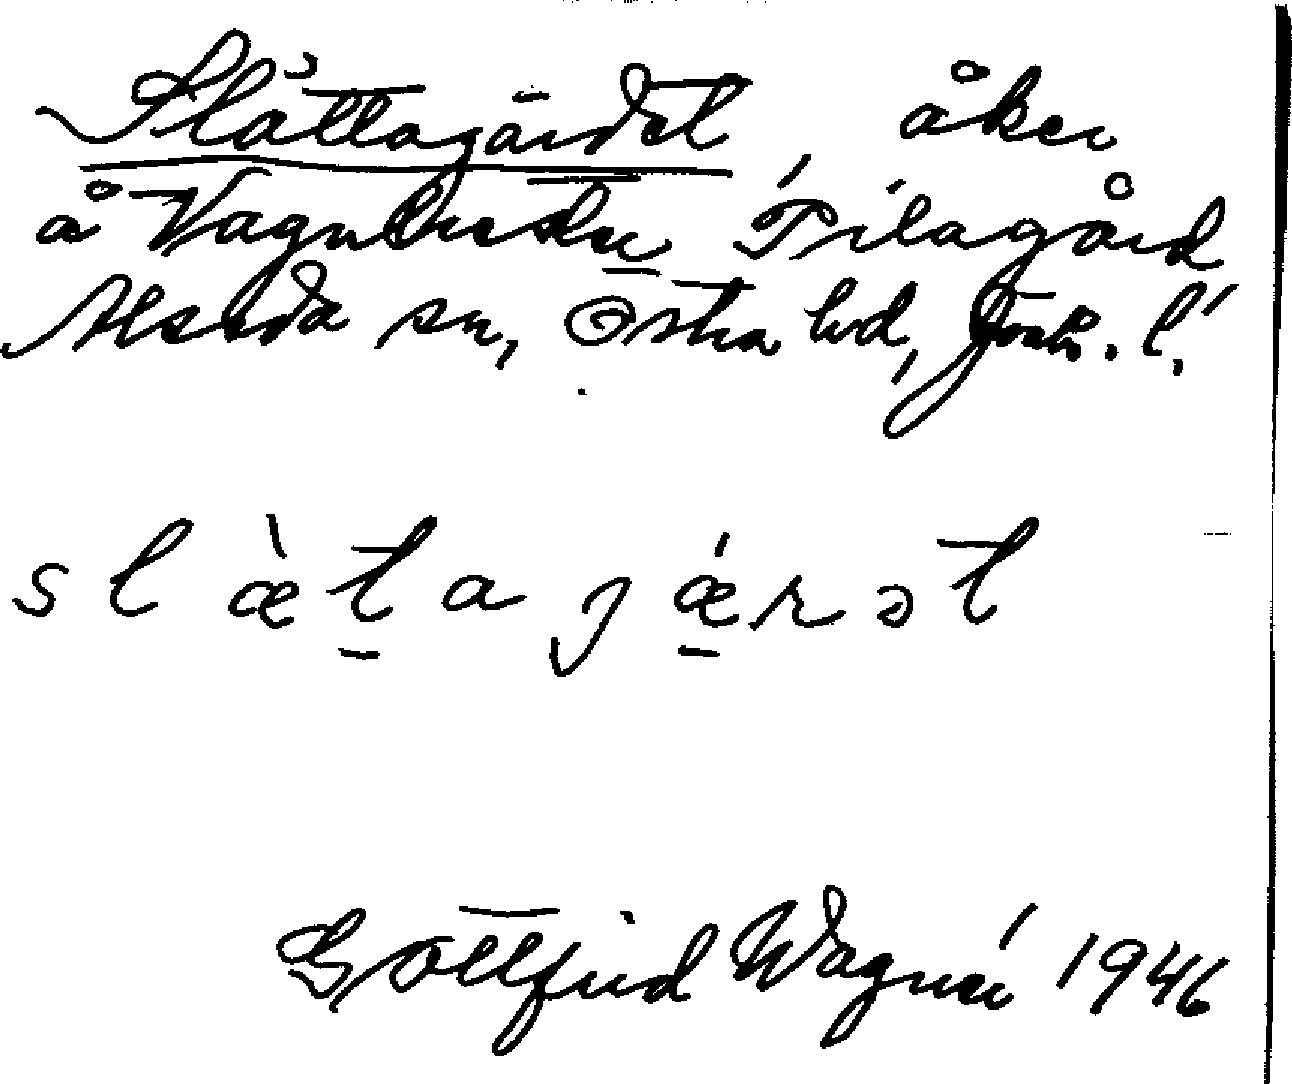 Slättagärdet, åker
å Vagnbredu Pilagård
Alseda sn, Östra hd, Jönk. l.
s l æ̀ t̠ a ȷ ǽ̠ r ə t
Gottfrid Wagnér 1946